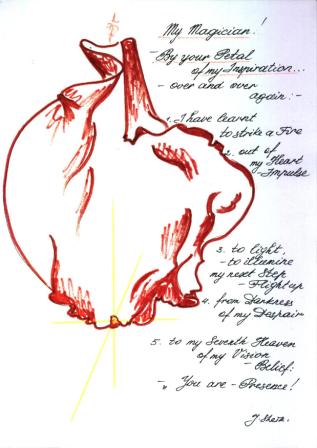 My Magician!
- By your Petal
of my Inspiration...
- over and over
again: -
1. I have learnt
to strike a Fire
2. out of
my Heart
- Impulse
3. to light,
- to illumine
my next Step
- Flight up
4. from Darkness
of my Despair
5. to my Seventh Heaven
of my Vision
- Belief:
- You are - Presence!